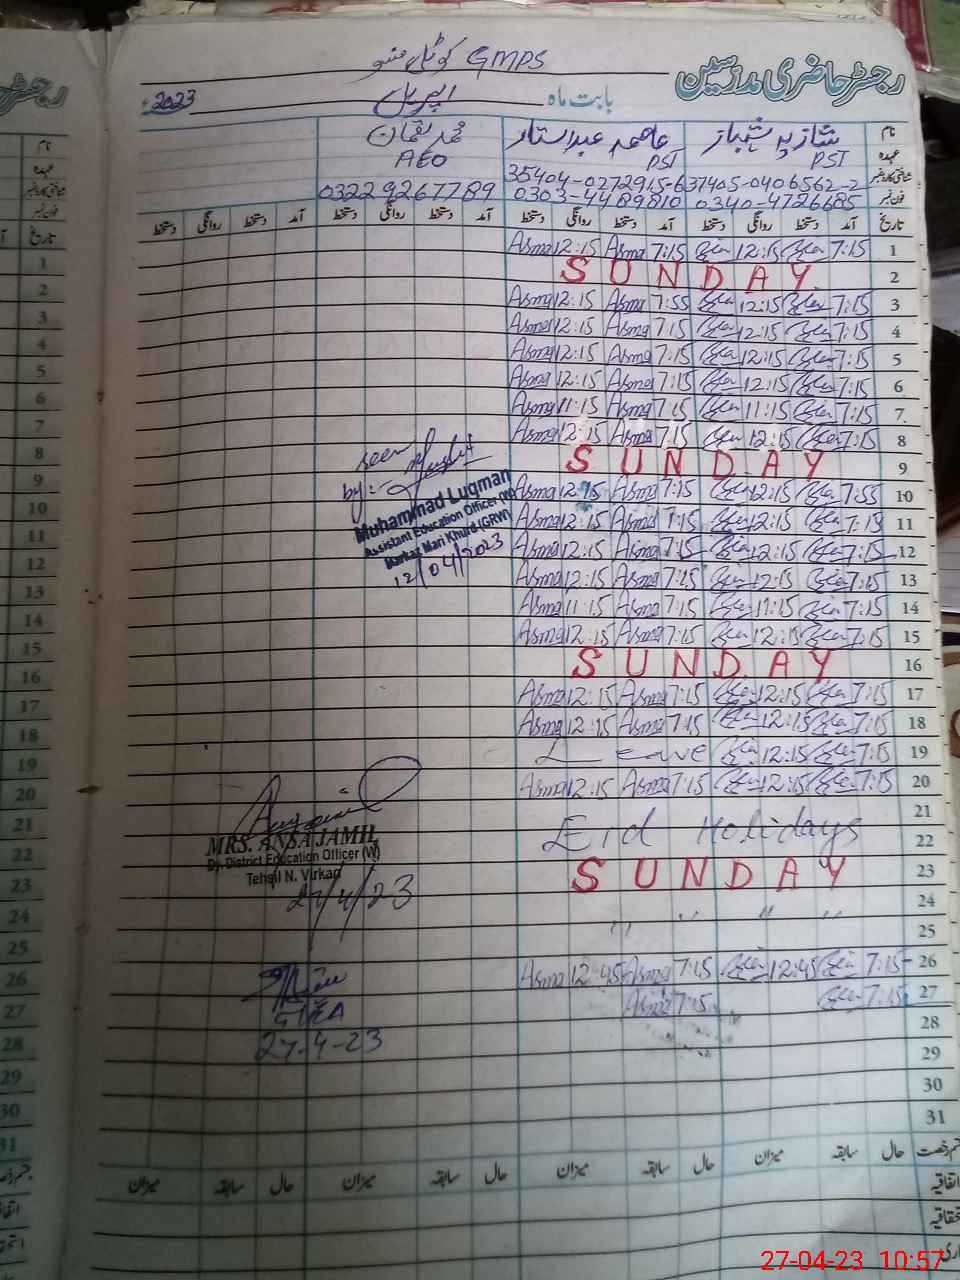 GMPS کوٹلی منسو
رجسٹر حاضری مدرسین
بابت ماہ اپریل 2023ء
نام شازیہ شہباز عاصمہ عبدالستار محمد لقمان
عہدہ PST PST AEO
شناختی کارڈ نمبر 37405-0406562-2 35404-0272915-6
فون نمبر 0340-4726685 0303-4489810 03229267789
تاریخ آمد دستخط روانگی دستخط آمد دستخط روانگی دستخط آمد دستخط روانگی دستخط آمد دستخط روانگی دستخط
1 7:15 12:15 7:15 Asma 12:15 Asma
2 SUNDAY
3 7:15 12:15 7:55 Asma 12:15 Asma
4 7:15 12:15 7:15 Asma 12:15 Asma
5 7:15 12:15 7:15 Asma 12:15 Asma
6 7:15 12:15 7:15 Asma 12:15 Asma
7 7:15 11:15 7:15 Asma 11:15 Asma
8 7:15 12:15 7:15 Asma 12:15 Asma
9 SUNDAY
10 7:55 12:15 7:15 Asma 12:15 Asma
11 7:15 12:15 7:15 Asma 12:15 Asma
12 7:15 12:15 7:15 Asma 12:15 Asma
13 7:15 12:15 7:15 Asma 12:15 Asma
14 7:15 11:15 7:15 Asma 11:15 Asma
15 7:15 12:15 7:15 Asma 12:15 Asma
16 SUNDAY
17 7:15 12:15 7:15 Asma 12:15 Asma
18 7:15 12:15 7:15 Asma 12:15 Asma
19 7:15 12:15 Leave
20 7:15 12:15 7:15 Asma 12:15 Asma
21
22 Eid Holidays
23 SUNDAY
24
25 " " " "
26 7:15 12:45 7:15 Asma 12:45 Asma
27 7:15 7:15 Asma
28
29
30
31
seen
by:-
Muhammad Luqman
Assistant Education Officer (W)
Markaz Mari Khurd (GRW)
12/04/2023
MRS. ANSA JAMIL
Dy. District Education Officer (W)
Tehsil N. Virkan
27/4/23
27-4-23
قسم رخصت حال سابقہ میزان حال سابقہ میزان حال سابقہ میزان حال سابقہ میزان
اتفاقیہ
استحقاقیہ
27-04-23 10:57